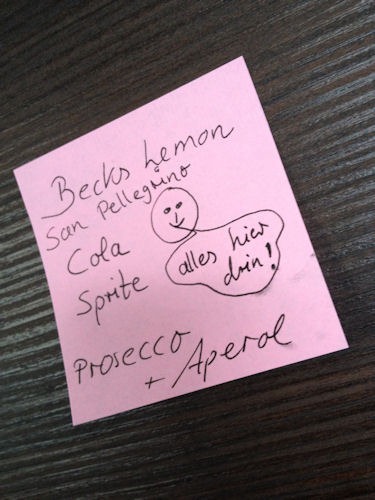 Becks Lemon
San Pellegrino
Cola
Sprite
alles hier
drin!
Prosecco
+ Aperol